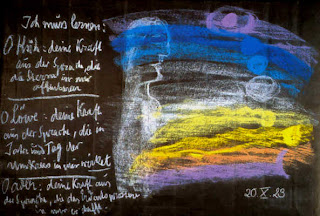 Ich muss lernen:
O Kuh: deine Kraft
aus der Sprache, die
die Sterne in mir
offenbaren
O Löwe: deine Kraft
aus der Sprache, die in
Jahr und Tag der
Umkreis in mir wirket
O Adler: deine Kraft aus
der Sprache, die das
in mir er schafft.
20 X. 23